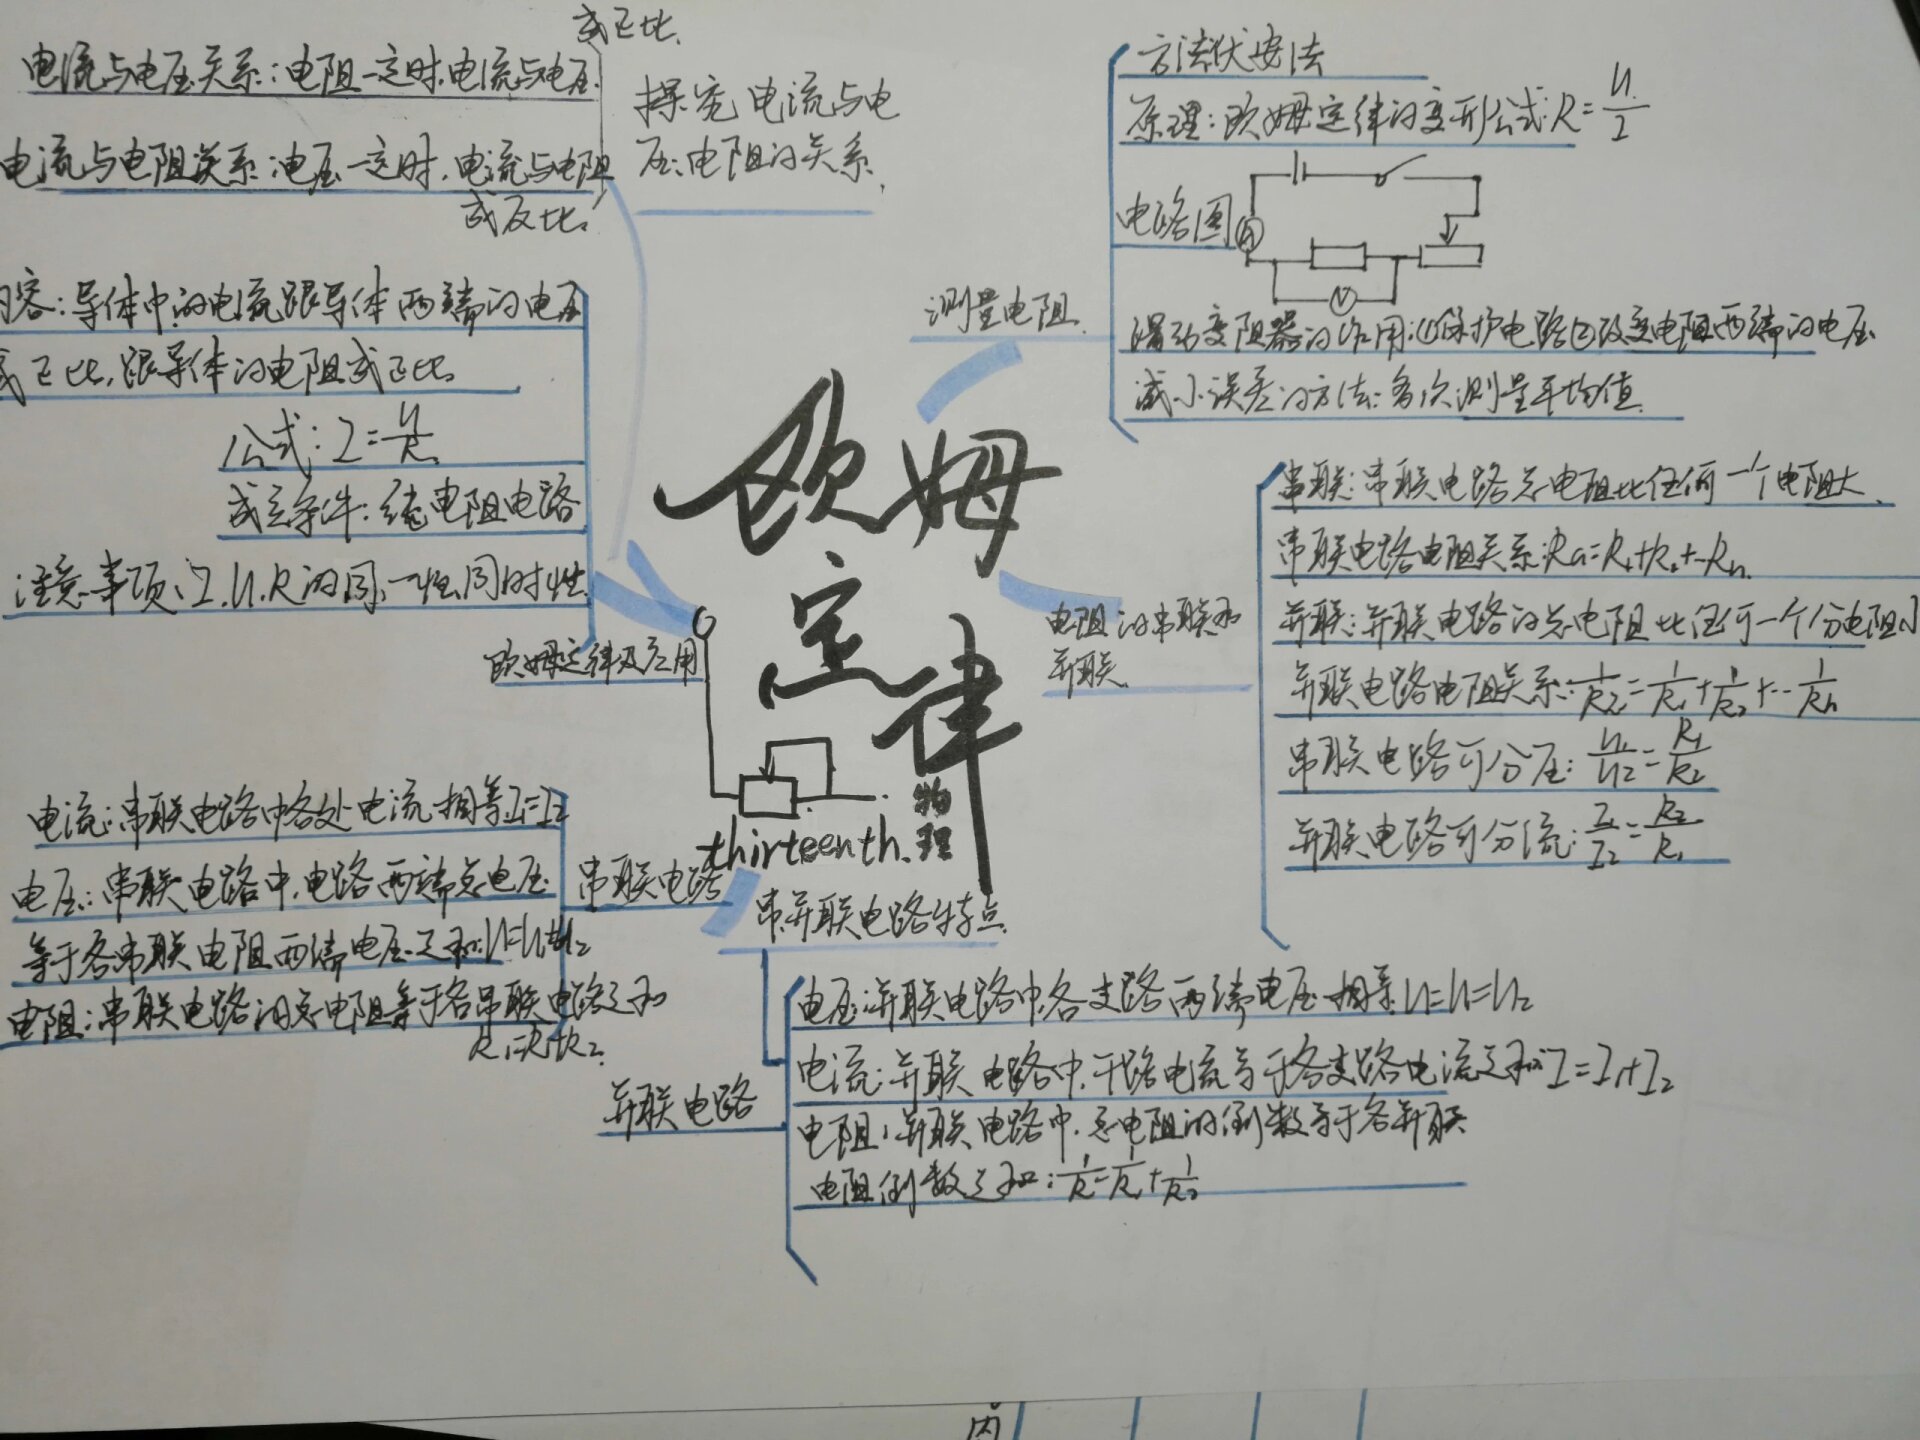 成正比.
电流与电压关系:电阻一定时,电流与电压
探究电流与电
压、电阻的关系.
电流与电阻关系:电压一定时,电流与电阻
成反比.
内容:导体中的电流跟导体两端的电压
成正比,跟导体的电阻成正比
公式:I=U/R
成立条件:纯电阻电路
注意事项:I.U.R的同一性,同时性
欧姆定律及应用
方法伏安法
原理:欧姆定律的变形公式:R=U/I
电路图
A
V
测量电阻
滑动变阻器的作用:(1)保护电路(2)改变电阻两端的电压
减小误差的方法:多次测量平均值
欧姆
定律
物理
thirteenth.
电阻的串联和
并联
串联:串联电路总电阻比任何一个电阻大.
串联电路电阻关系:
并联:并联电路的总电阻比任何一个分电阻小
并联电路电阻关系:
串联电路可分压:U1/U2=R1/R2
并联电路可分流:I1/I2=R2/R1
电流:串联电路中各处电流相等I1=I2
电压:串联电路中,电路两端总电压
等于各串联电阻两端电压之和:U=U1+U2
电阻:串联电路的总电阻等于各串联电路之和
串联电路
串.并联电路特点
并联电路
电压:并联电路中,各支路两端电压相等U=U1=U2
电流:并联电路中,干路电流等于各支路电流之和I=I1+I2
电阻:并联电路中,总电阻的倒数等于各并联
电阻倒数之和:1/R=1/R1+1/R2
内